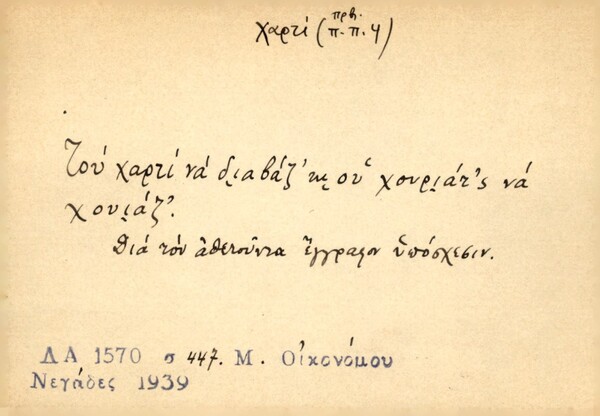 πρβ.
χαρτί (π.π.4)
Τοὺ χαρτί νά δι̯αβάζ' κι̯ οὑ χουρι̯άτ'ς νά
χουι̯άζ'.
Διά τόν ἀθετοῦντα ἔγγραφον ὑπόσχεσιν.
ΔΑ 1570 σ 447. Μ. Οἰκονόμου
Νεγάδες 1939